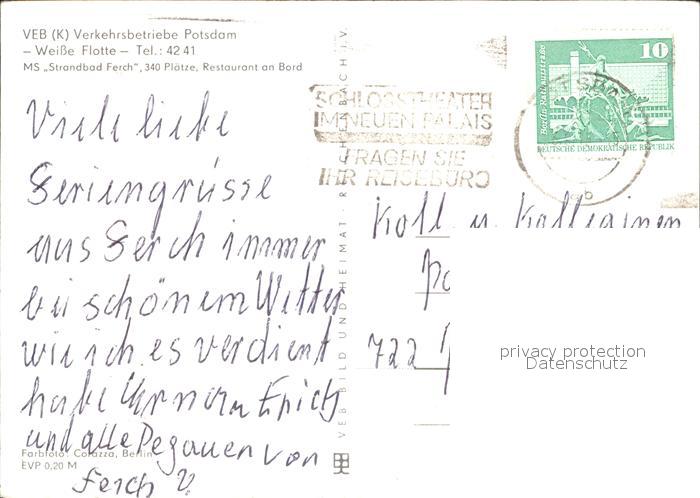 VEB (K) Verkehrsbetriebe Potsdam
– Weiße Flotte – Tel.: 42 41
MS „Strandbad Ferch", 340 Plätze, Restaurant an Bord
Viele liebe
Feriengrüsse
aus Ferch immer
bei schönem Wetter
wie ich es verdient
habe Erich
und alle Pegauer von
Ferch
Farbfoto: Corazza, Berlin
EVP 0,20 M
VEB BILD UND HEIMAT · REICHENBACH I. V.
SCHLOSSTHEATER
IM NEUEN PALAIS
FRAGEN SIE
IHR REISEBÜRO
10
Berlin, Rathausstraße
DEUTSCHE DEMOKRATISCHE REPUBLIK
Koll u. Kolleginnen
722
privacy protection
Datenschutz